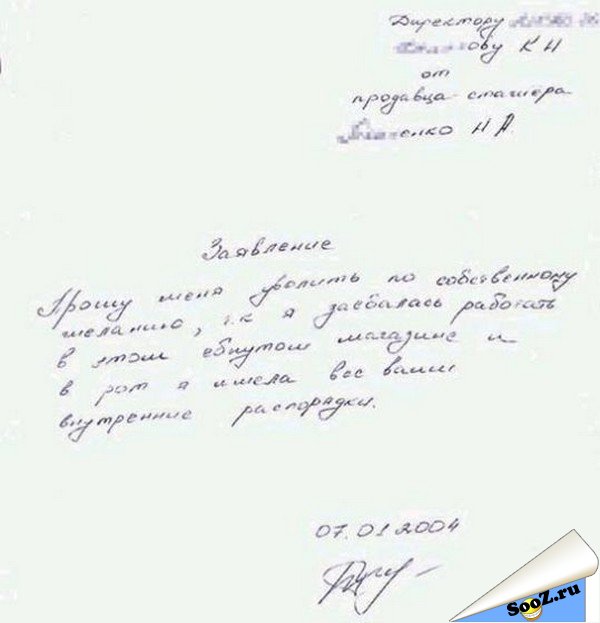 Директору
ову К Н
от
продавца-стажёра
енко Н А
Заявление
Прошу меня уволить по собственному
желанию, т.к я заебалась работать
в этом ебнутом магазине и
в рот я имела все ваши
внутренние распорядки.
07.01.2004
SooZ.ru